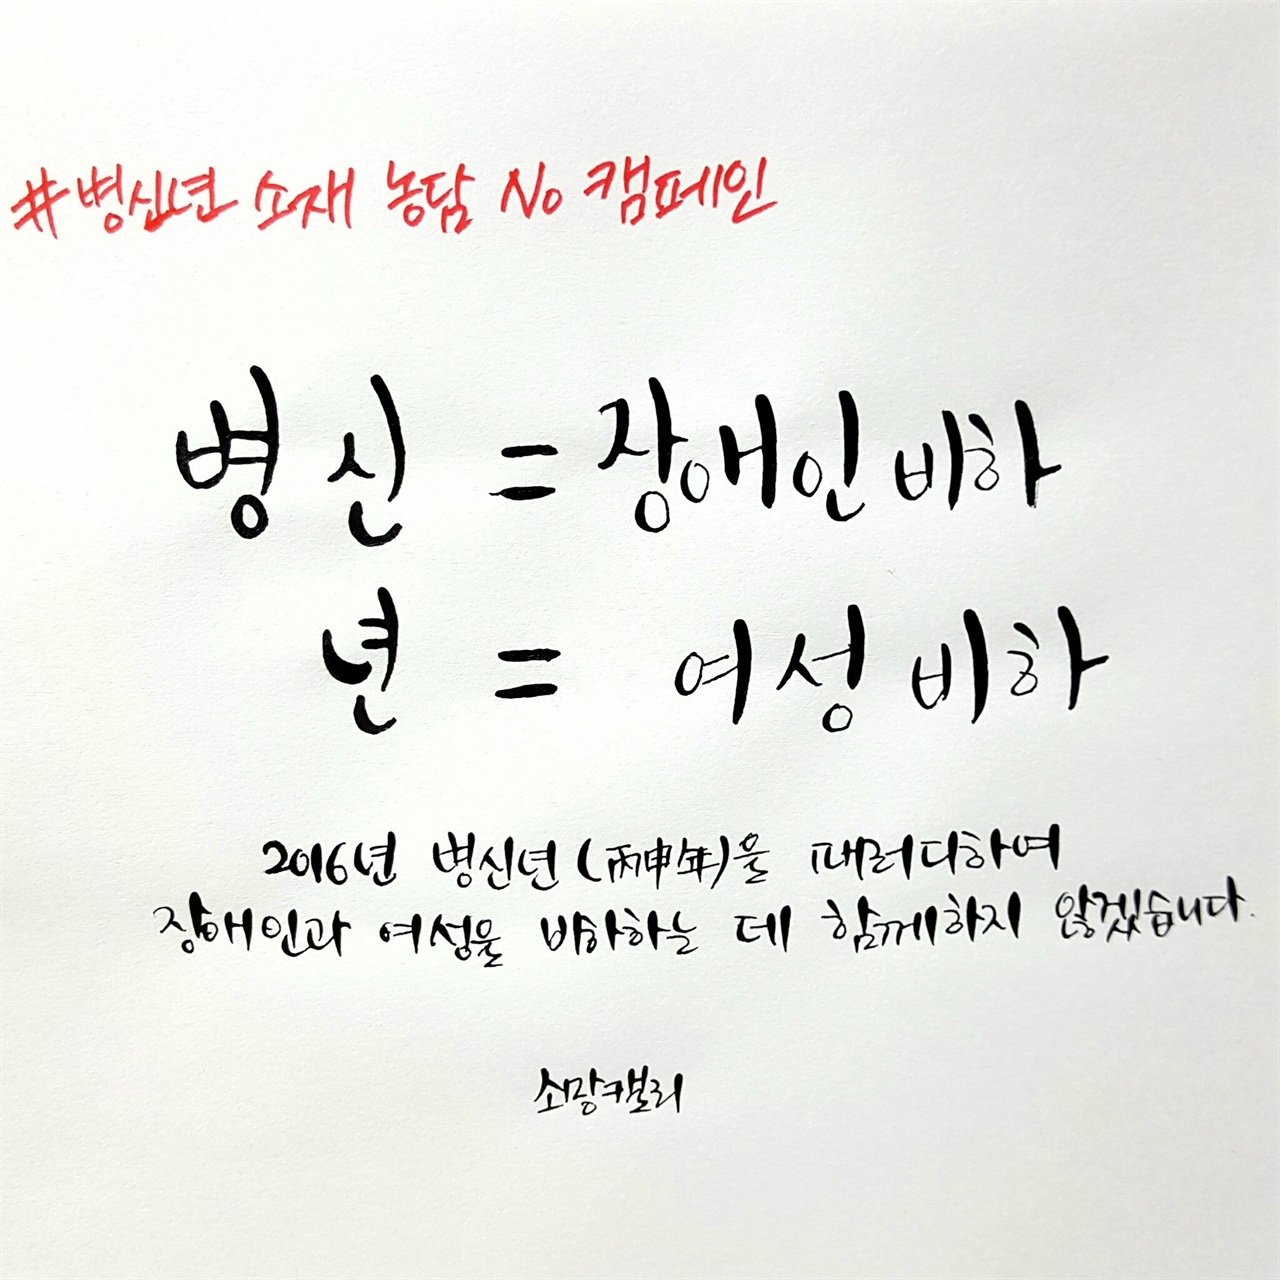 #병신년 소재 농담 No 캠페인
병신 = 장애인비하
년 = 여성비하
2016년 병신년(丙申年)을 패러디하여
장애인과 여성을 비하하는 데 함께하지 않겠습니다.
쇠망캘리